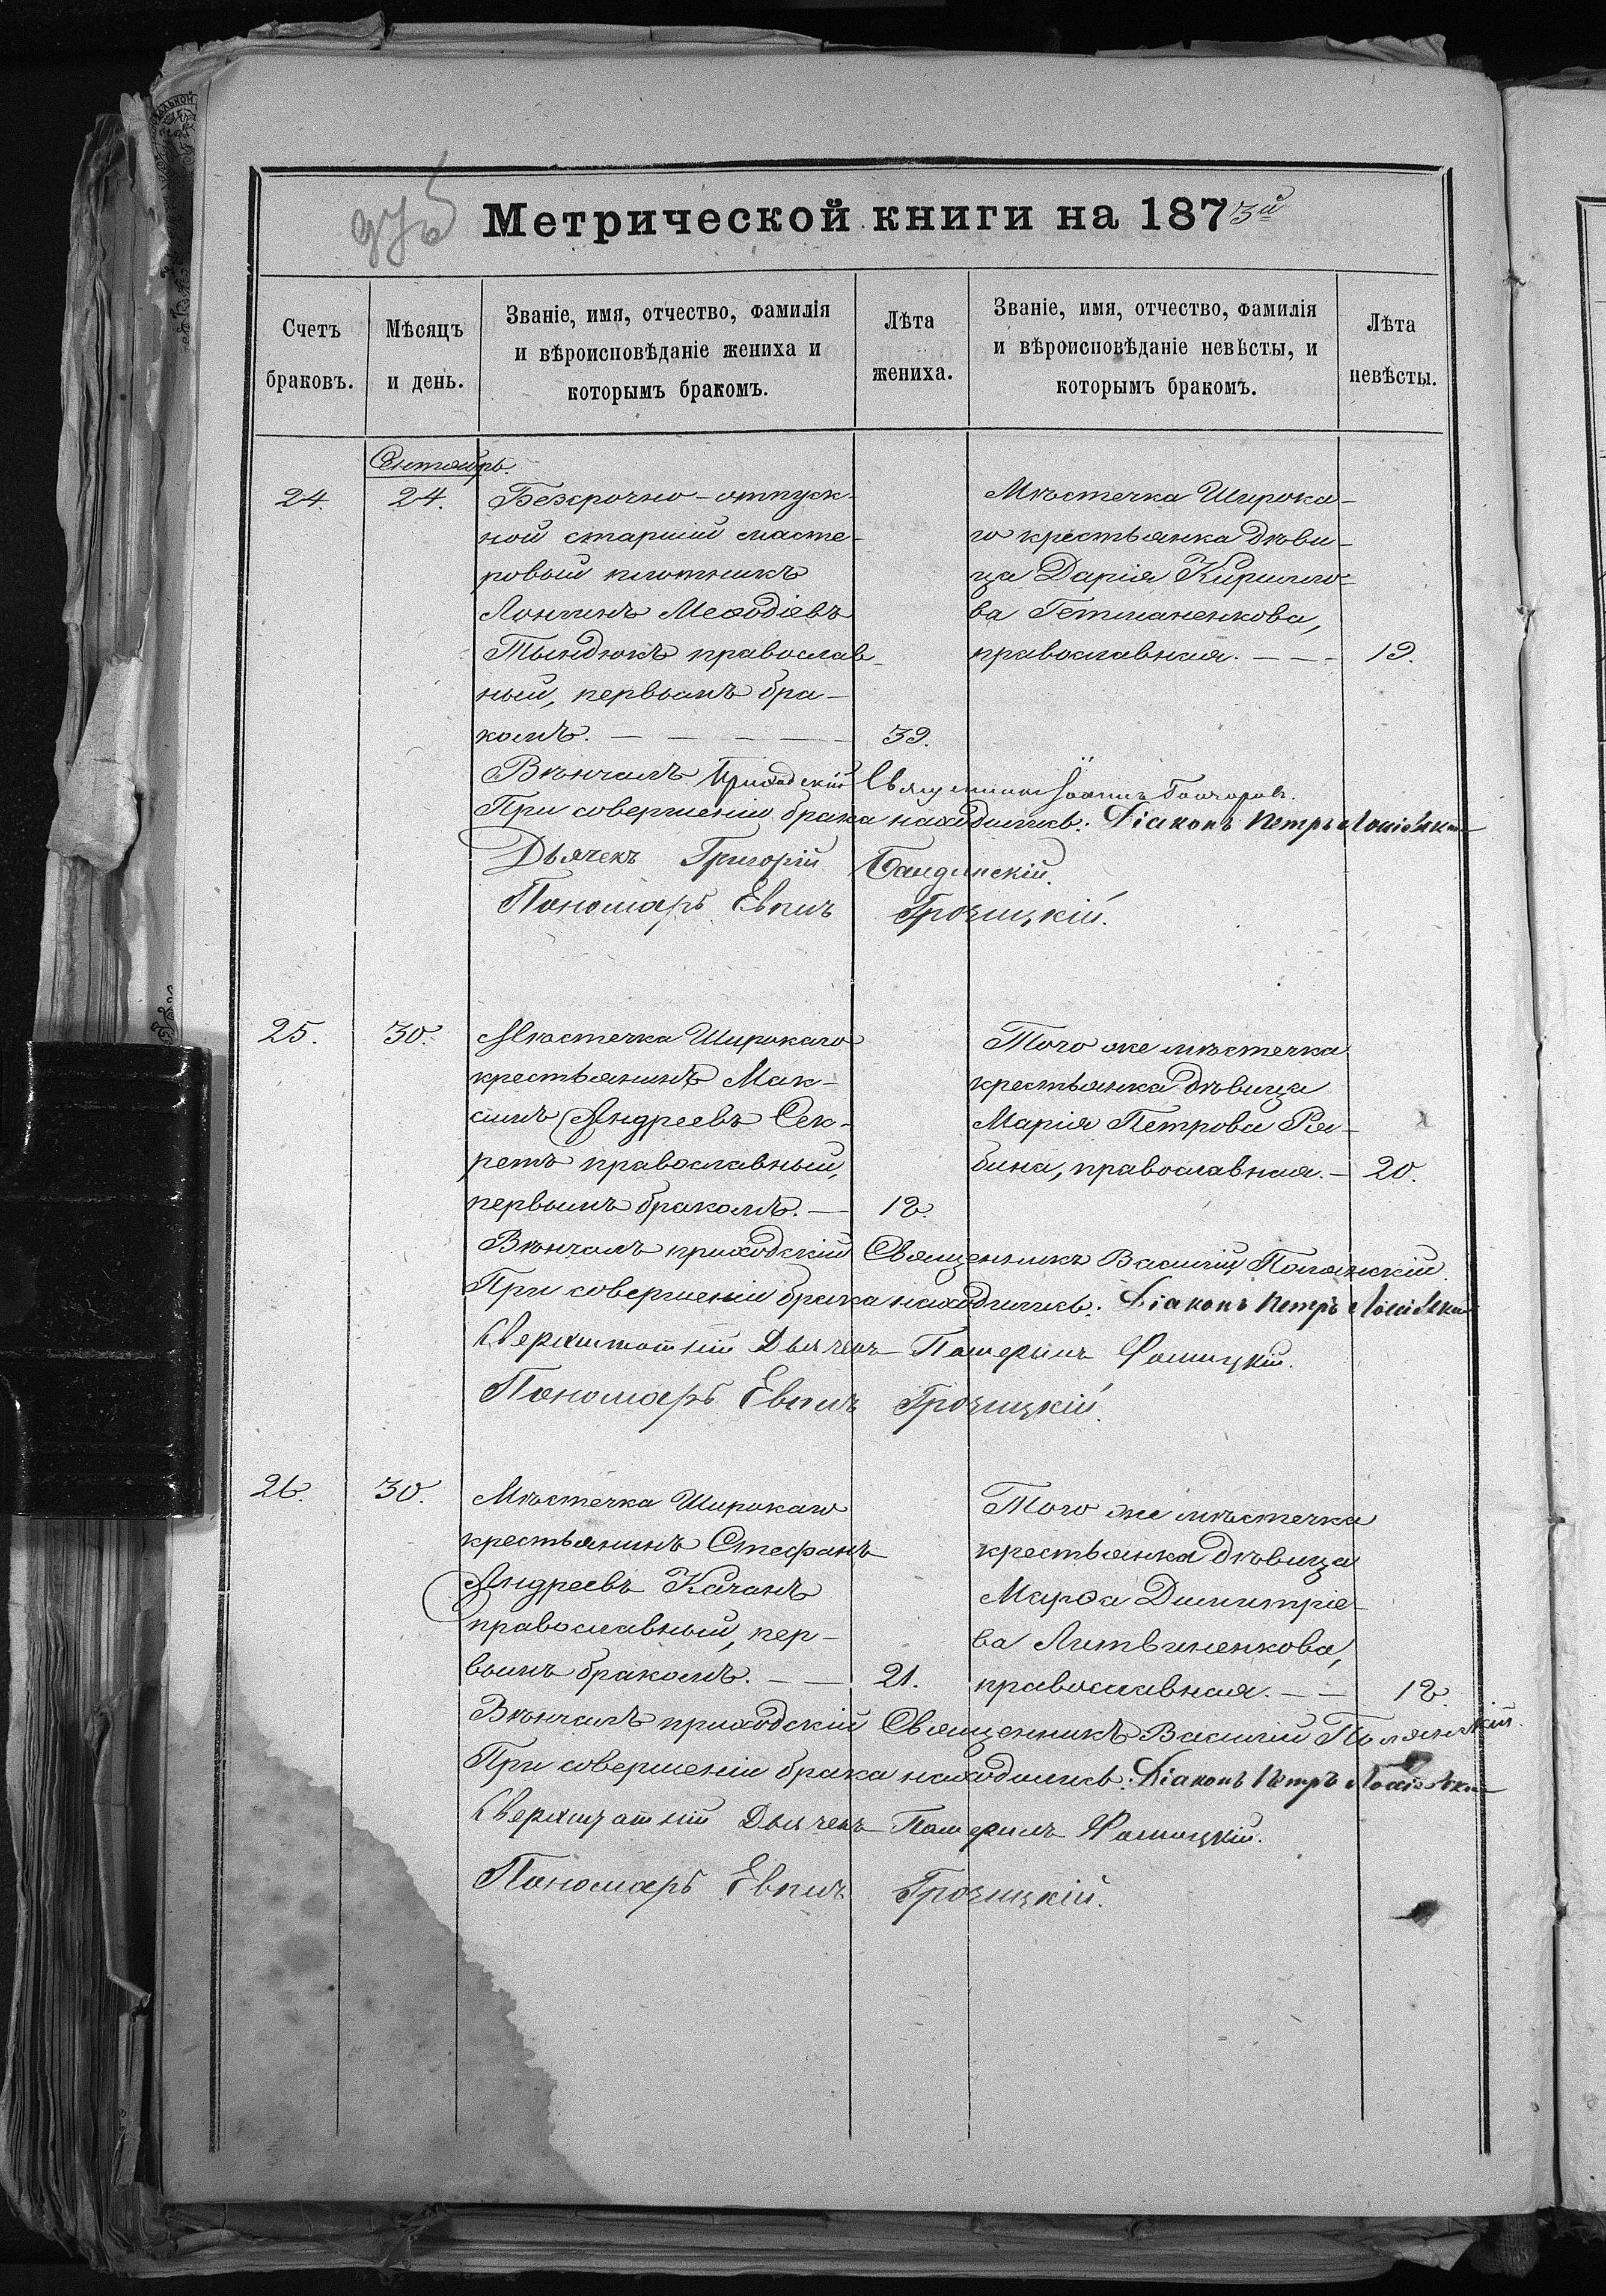 Метрической книги на 1873й
Счетъ браковъ.
Мѣсяцъ и день.
Званіе, имя, отчество, фамилія и вѣроисповѣданіе жениха и которымъ бракомъ.
Лѣта жениха.
Званіе, имя, отчество, фамилія и вѣроисповѣданіе невѣсты, и которымъ бракомъ.
Лѣта невѣсты.
Сентябрь.
24.
24.
Безсрочно-отпуск-
ной старший масте-
ровый плотникъ
Лонгинъ Меѳодіевъ
Тындюкъ православ-
ный, первымъ бра-
комъ.
39.
Мѣстечка Широка-
го крестьянка дѣви-
ца Дарія Кирилло-
ва Гетманенкова,
православная.
19.
Вѣнчалъ Приходскій Священникъ Іоаннъ
При совершеніи брака находились: Діаконъ Петръ
Дьячекъ Григорій
Пономарь
25.
30.
Мѣстечка Широкаго
крестьянинъ Мак-
симъ Андреевъ Сек-
ретъ православный,
первымъ бракомъ.
18.
Того же мѣстечка
крестьянка дѣвица
Марія Петрова Ря-
бина, православная.
20.
Вѣнчалъ приходскій Священникъ Василій Полянскій.
При совершеніи брака находились: Діаконъ Петръ
Сверхштатній Дьячекъ
Пономарь
26.
30.
Мѣстечка Широкаго
крестьянинъ Стефанъ
Андреевъ Качанъ
православный, пер-
вымъ бракомъ.
21.
Того же мѣстечка
крестьянка дѣвица
Марѳа Димитріе-
ва Литвиненкова,
православная.
18.
Вѣнчалъ приходскій Священникъ Василій Полянскій.
При совершеніи брака находились: Діаконъ Петръ
Сверхштатній Дьячекъ
Пономарь